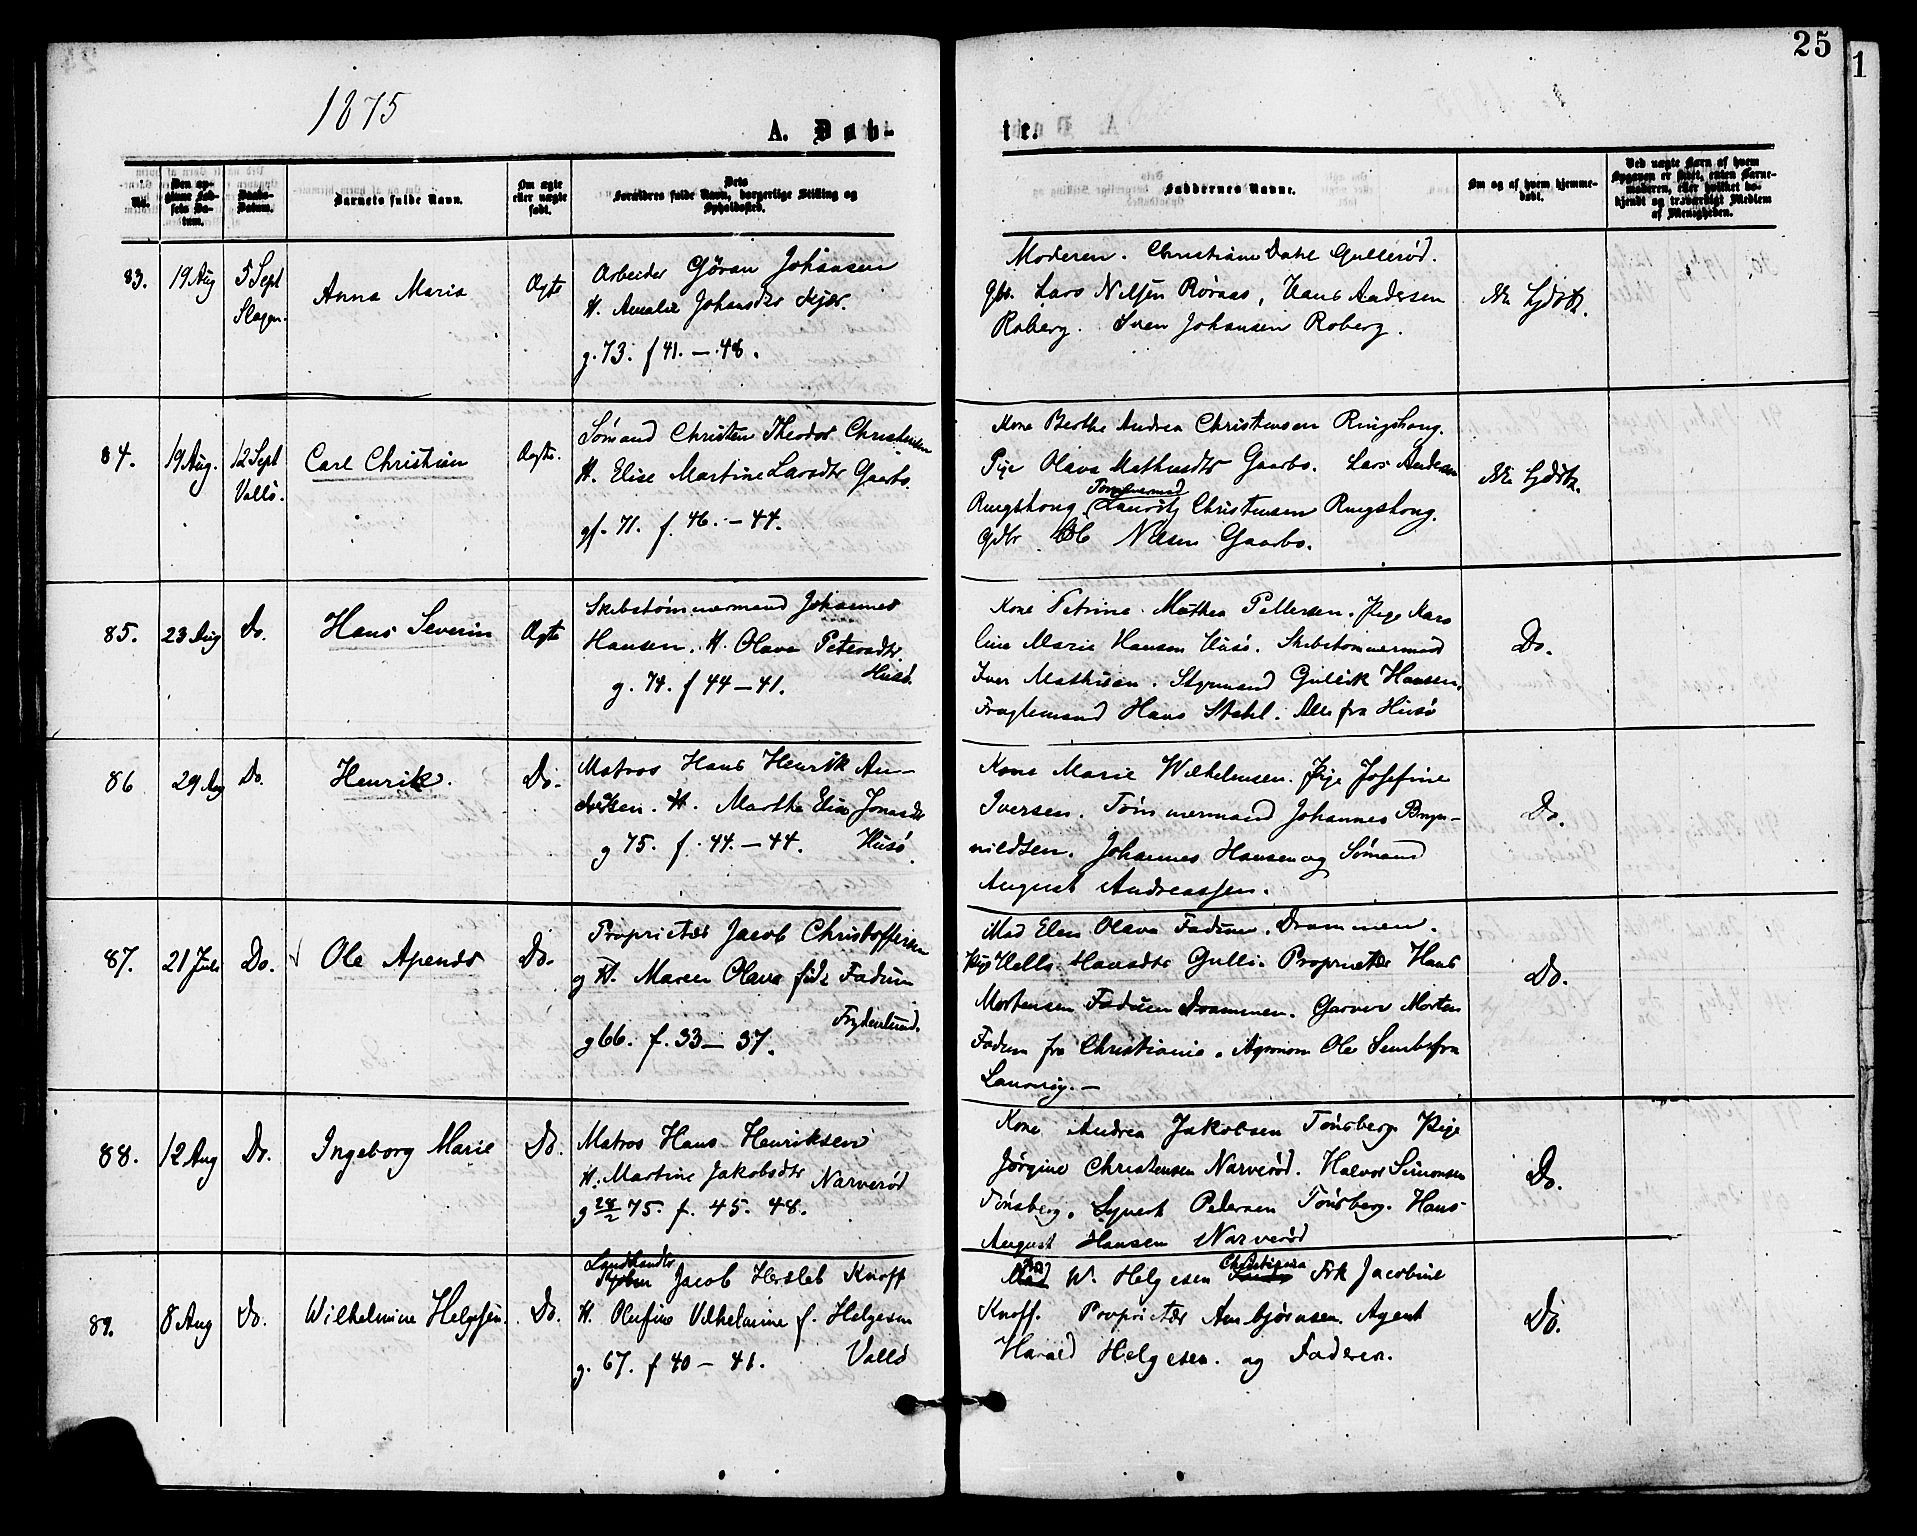 25
1
1875
A. Døb-
te.
No.
Den op-
givne Fød-
sels Da-
tum.
Daabs-
Datum.
Barnets fulde Navn.
Om ægte
eller uægte
født.
Dets
Forældres fulde Navn, borgerlige Stilling og
Opholdssted.
Faddernes Navne.
Om og af hvem hjemme-
døbt.
Ved uægte Barn af hvem
Opgaven er skeet, enten Barne-
moderen, eller hvilket be-
kjendt og troværdigt Medlem
af Menigheden.
83. 19 Aug 5 Sept
Slagen.
Anna Maria
Ægte
Arbeider Gøran Johansen
H. Amalie Johansdtr Kjær.
g. 73. f 41. — 48.
Moderen. Christiane Dahl Gullerød.
Gbr. Lars Nilsen Röraas, Hans Andersen
Roberg. Sven Johansen Roberg.
Ei hjdøbt.
84. 19 Aug. 12 Sept
Vallö.
Carl Christian
Ægte.
Sømand Christen Theodor Christensen
H. Elise Martine Larsdtr Gaarbo.
gf. 71. f. 46. — 44.
Kone Berthe Andrea Christensen Ringshoug.
Pige Olava Mathisdtr Gaarbo. Lars Andersen
Ringshoug, Tømmermand Lauritz Christensen Ringshoug.
Gdbr Ole Nilsen Gaarbo.
Ei hjdøbt.
85. 23 Aug Do. Hans Severin Ægte
Skibstømmermand Johannes
Hansen. H. Olava Petersdtr.
Husö.
g. 74. f 44 — 41.
Kone Petrine Mathea Pettersen. Pige Karo
line Marie Hansen Husö. Skibstømmermand
Iver Mathisen. Styrmand Gullik Hansen,
Fragtemand Hans Stahl. Alle fra Husö
Do.
86 29 Aug Do. Henrik. Do.
Matros Hans Henrik An-
dersen. H. Marthe Elise Jonasdtr
g 75. f. 44. — 44. Husö.
Kone Marie Wilhelmsen. Pige Josefine
Iversen. Tømmermand Johannes Bryn-
nildsen. Johannes Hansen og Sømand
August Andreassen.
Do.
87. 21 Juli Do. Ole Apenes Do.
Proprietær Jacob Christoffersen
og H. Maren Olava født Fadum
Frydenlund.
g 66. f. 33 — 37.
Mad Elen Olava Fadum. Drammen.
Pige Helle Hansdtr Gulli. Proprietær Hans
Mortensen Fadum Drammen. Garver Morten
Fadum fra Christiania. Agronom Ole Sembs fra
Laurvig. —
Do.
88. 12 Aug Do. Ingeborg Marie Do.
Matros Hans Henriksen
H. Martine Jakobsdtr Narverød
g 28/2 75. f. 45. 48.
Kone Andrea Jakobsen Tønsberg. Pige
Jørgine Christensen Narverød. Halvor Simonsen
Tønsberg. Syvert Pedersen Tønsberg. Hans
August Hansen Narverød
Do.
89. 8 Aug Do. Wilhelmine Helgesen. Do.
Landhandler
Jacob Hersleb Knoff
H. Olufine Vilhelmine f. Helgesen
g. 67. f 40 — 41. Vallö
W. Helgesen Christiania Frk Jacobine
Knoff. Proprietær Arnbjørnsen. Agent
Harald Helgesen. og Faderen.
Do.